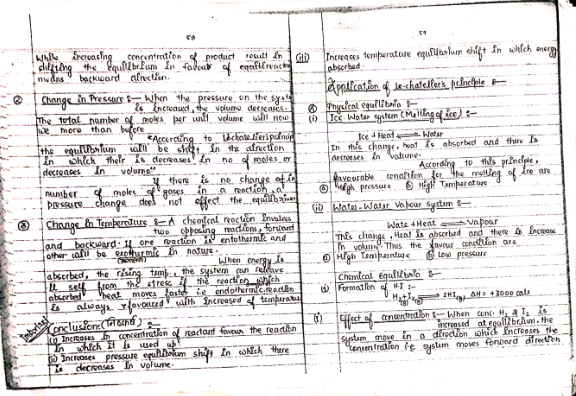 58
While increasing concentration of product result in
shifting the equilibrium in favour of
means backward direction.
② Change in Pressure :- When the pressure on the system
is increased, the volume decreases.
The total number of moles per unit volume will now
be more than before
According to Lechatelier's
the equilibrium will be shift in the direction
in which their is decreases in no of moles or
decreases in volume"
If there is no change of in
number of moles of gases in a reaction, a
pressure change does not effect the equilibrium
③ Change in Temperature :- A chemical reaction Involves
two opposing reactions, forward
and backward. If one reaction is entothermic and
other will be exothermic in nature.
When energy is
absorbed, the rising temp., the system can relieve
it self from the stress if the reaction which
absorbed heat moves faster i.e endothermic reaction
is always favoured with increased of temperature
Conclusion (Trend) :-
(i) Increases in concentration of reactant favour the reaction
in which it is used up
(ii) Increases pressure equilibrium shift in which there
is decreases in volume.
59
(iii) Increases temperature equilibrium shift in which energy
absorbed.
Application of Le-chatelier's principle :-
Physical equilibria :-
(i) Ice-Water system (Melting of ice) :-
Ice + Heat ⇌ Water
In this change, heat is absorbed and there is
decreases in volume.
According to this principle,
favourable condition for the melting of ice are
ⓐ High pressure ⓑ High Temperature
(ii) Water-Water Vapour system :-
Water + Heat ⇌ Vapour
This change, Heat is absorbed and there is Increase
in volume. Thus the favour condition are
High Temperature ⓑ Low pressure
Chemical equilibria :-
Formation of HI :-
H₂(g) + I₂(g) ⇌ 2HI(g) ΔH = +3000 cals
(i) Effect of concentration :- When conc H₂ & I₂ is
increased at equilibrium, the
system move in a direction which decreases the
concentration i.e system moves forward direction